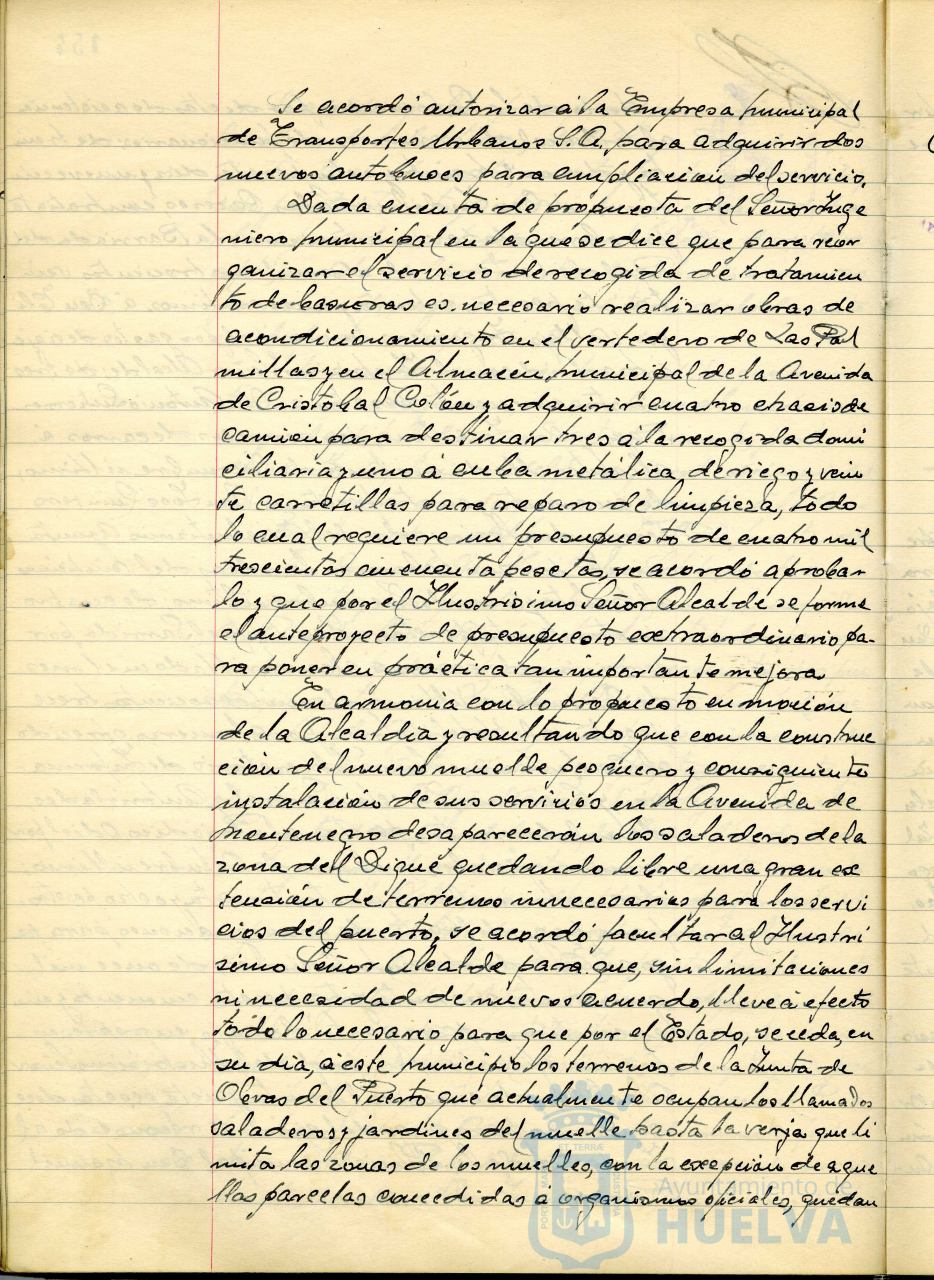 Se acordó autorizar á la Empresa municipal
de Transportes Urbanos S.A. para adquirir dos
nuevos autobuses para ampliación del servicio.
Dada cuenta de propuesta del Señor Inge
niero municipal en la que se dice que para reor
ganizar el servicio de recogida de tratamien
to de basuras es necesario realizar obras de
acondicionamiento en el vertedero de Las Pal
millas y en el Almacén municipal de la Avenida
de Cristobal Colón y adquirir cuatro chasis de
camión para destinar tres á la recogida domi
ciliaria y uno á cuba metálica de riego y vein
te carretillas para reparo de limpieza, todo
lo cual requiere un presupuesto de cuatro mil
trescientas cincuenta pesetas, se acordó aprobar
lo y que por el Ilustrisimo Señor Alcalde se forme
el anteproyecto de presupuesto extraordinario pa-
ra poner en práctica tan importante mejora
En armonia con lo propuesto en moción
de la Alcaldia y resultando que con la construc
ción del nuevo muelle pesquero y consiguiente
instalación de sus servicios en la Avenida de
Montenegro desaparecerán los saladeros de la
zona dell Dique quedando libre una gran ex
tensión de terrenos innecesarios para los servi
cios del puerto, se acordó facultar al Ilustri
simo Señor Alcalde para que, sin limitaciones
ni necesidad de nuevos acuerdo, lleve á efecto
todo lo necesario para que por el Estado, se ceda, en
su dia, á este municipio los terrenos de la Junta de
Obras del Puerto que actualmente ocupan los llamados
saladeros y jardines del muelle hasta la verja que li
mita las zonas de los muelles, con la excepción de aque
llas parcelas concedidas á organismos oficiales, quedan
Ayuntamiento de
HUELVA